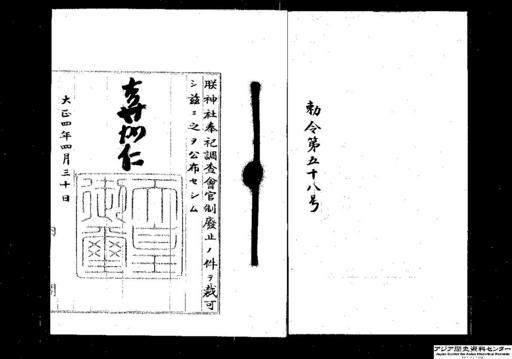 勅令第五十八号
朕神社奉祀調査會官制廢止ノ件ヲ裁可
シ茲ニ之ヲ公布セシム
嘉仁
天皇御璽
大正四年四月三十日
アジア歴史資料センター
Japan Center for Asian Historical Records